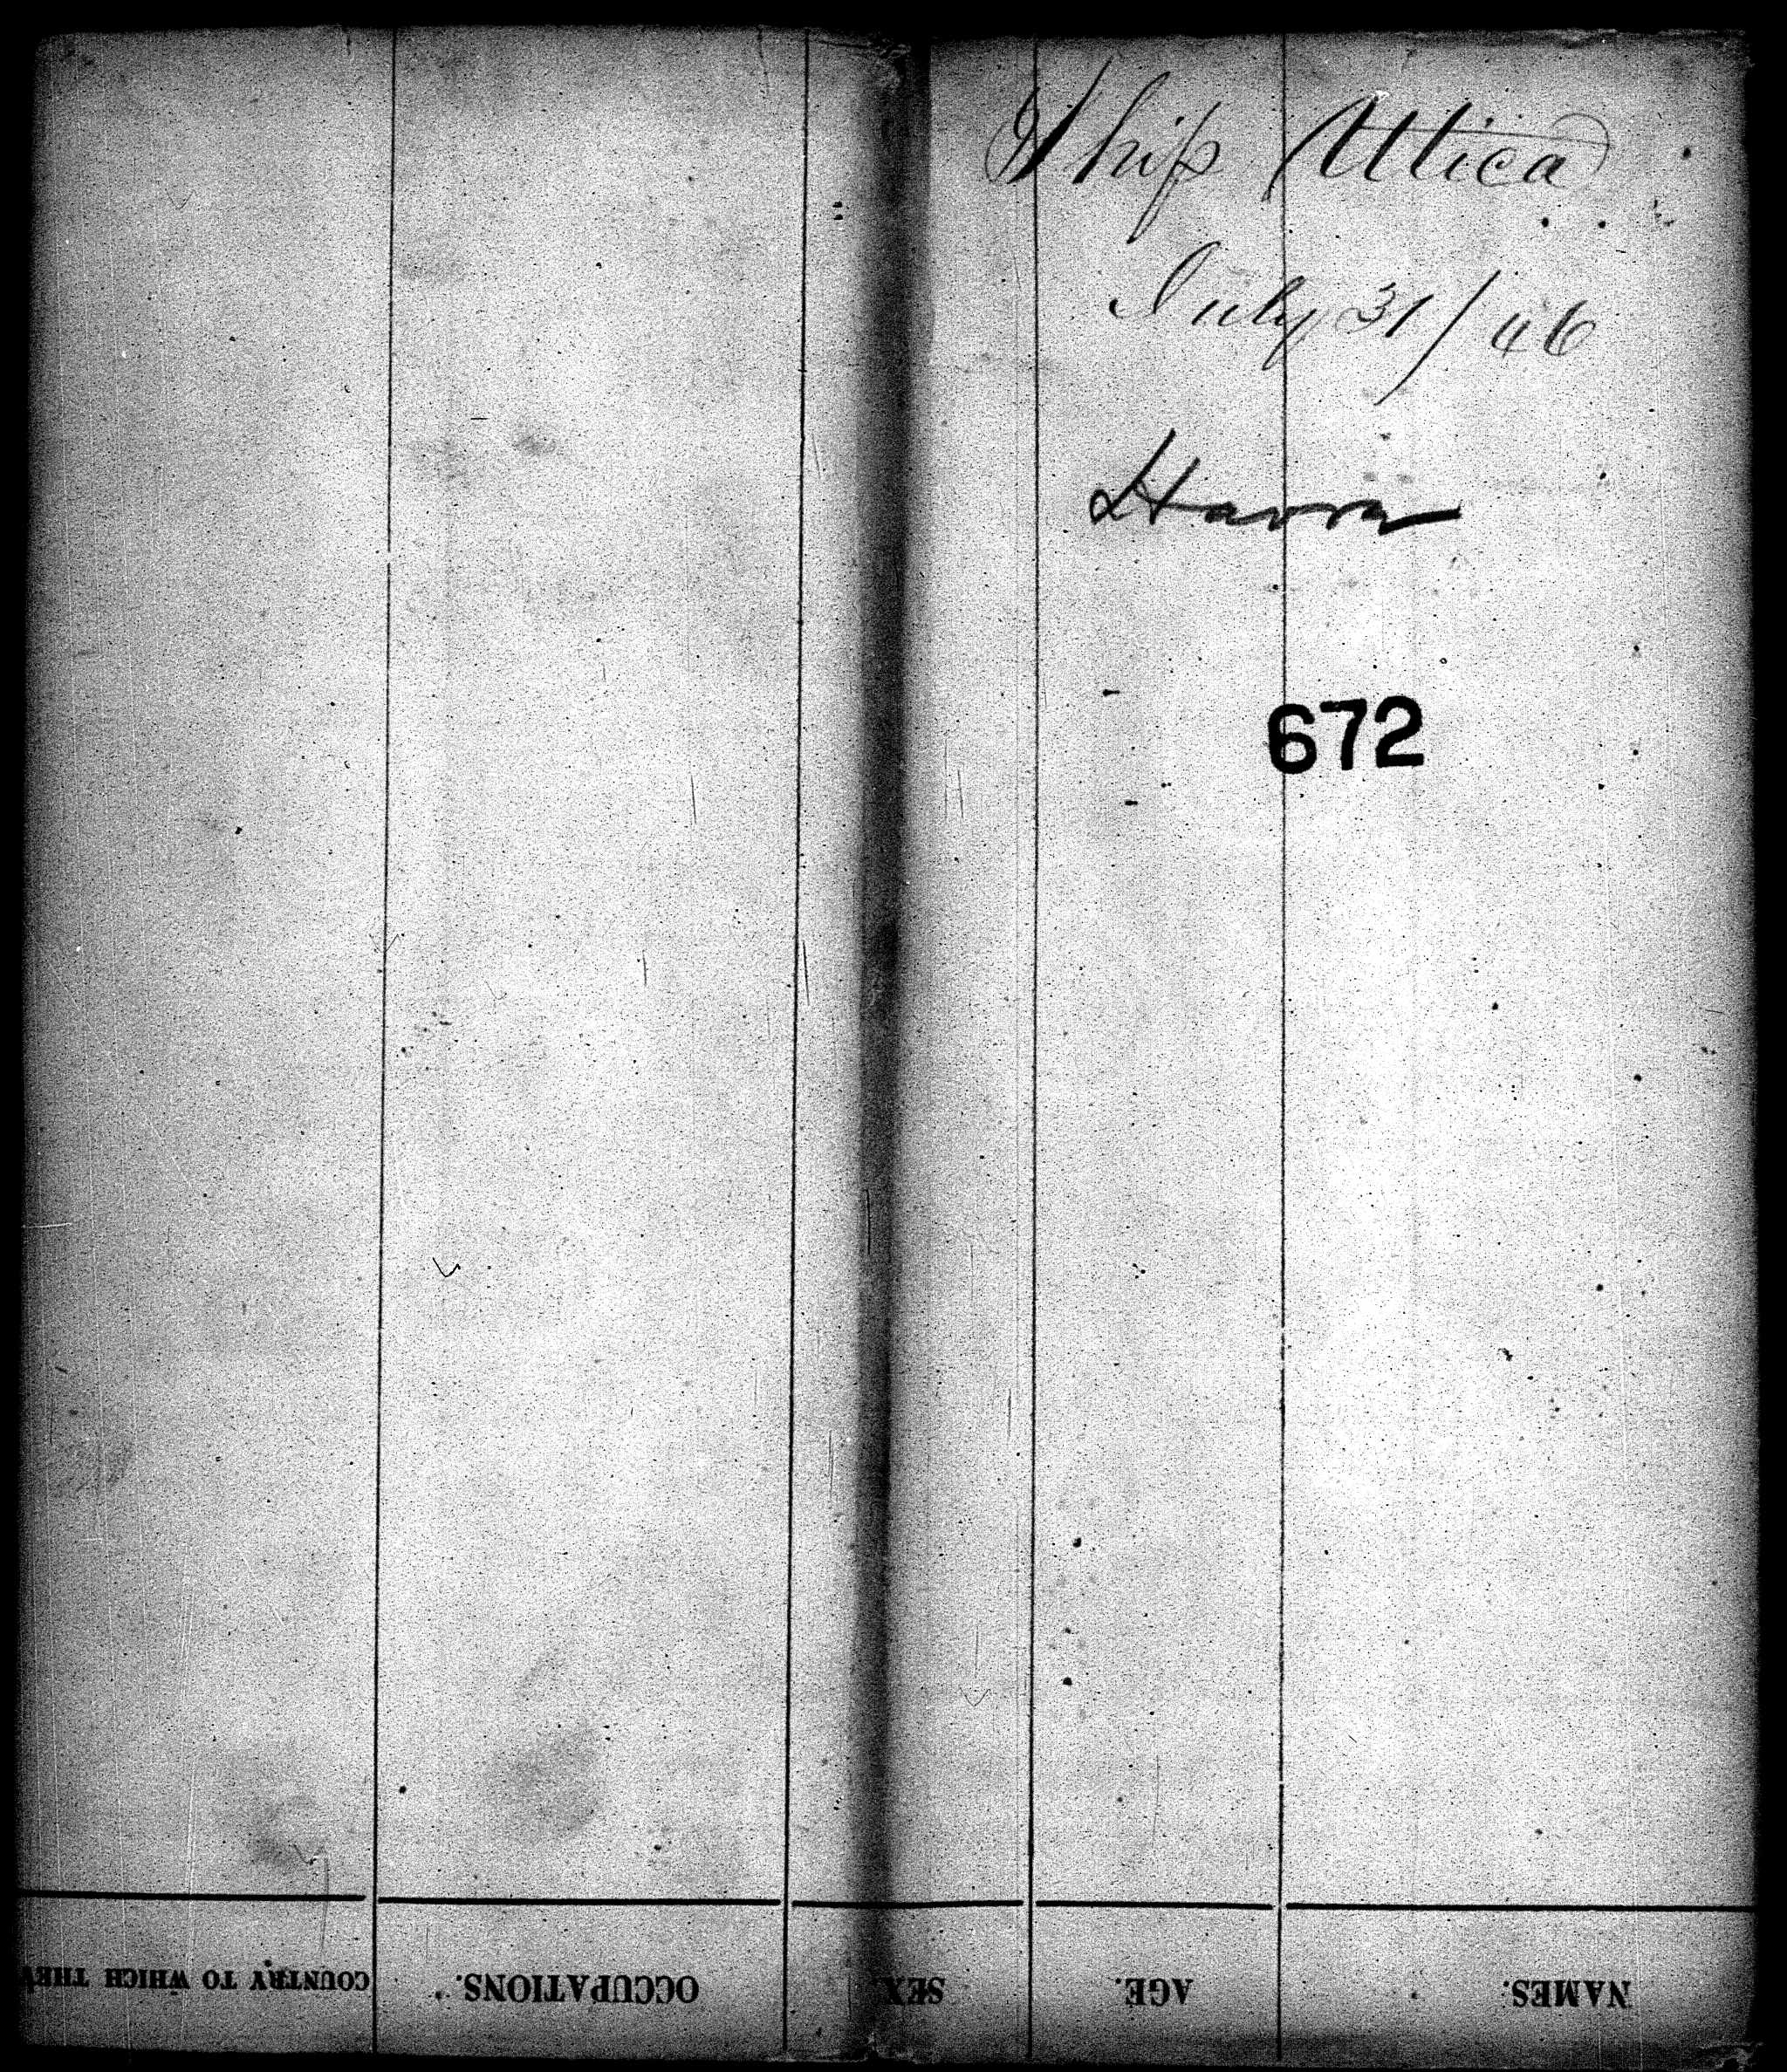 Ship Utica
July 31/46
Havre
672
NAMES.
AGE.
SEX.
OCCUPATIONS.
COUNTRY TO WHICH THEY